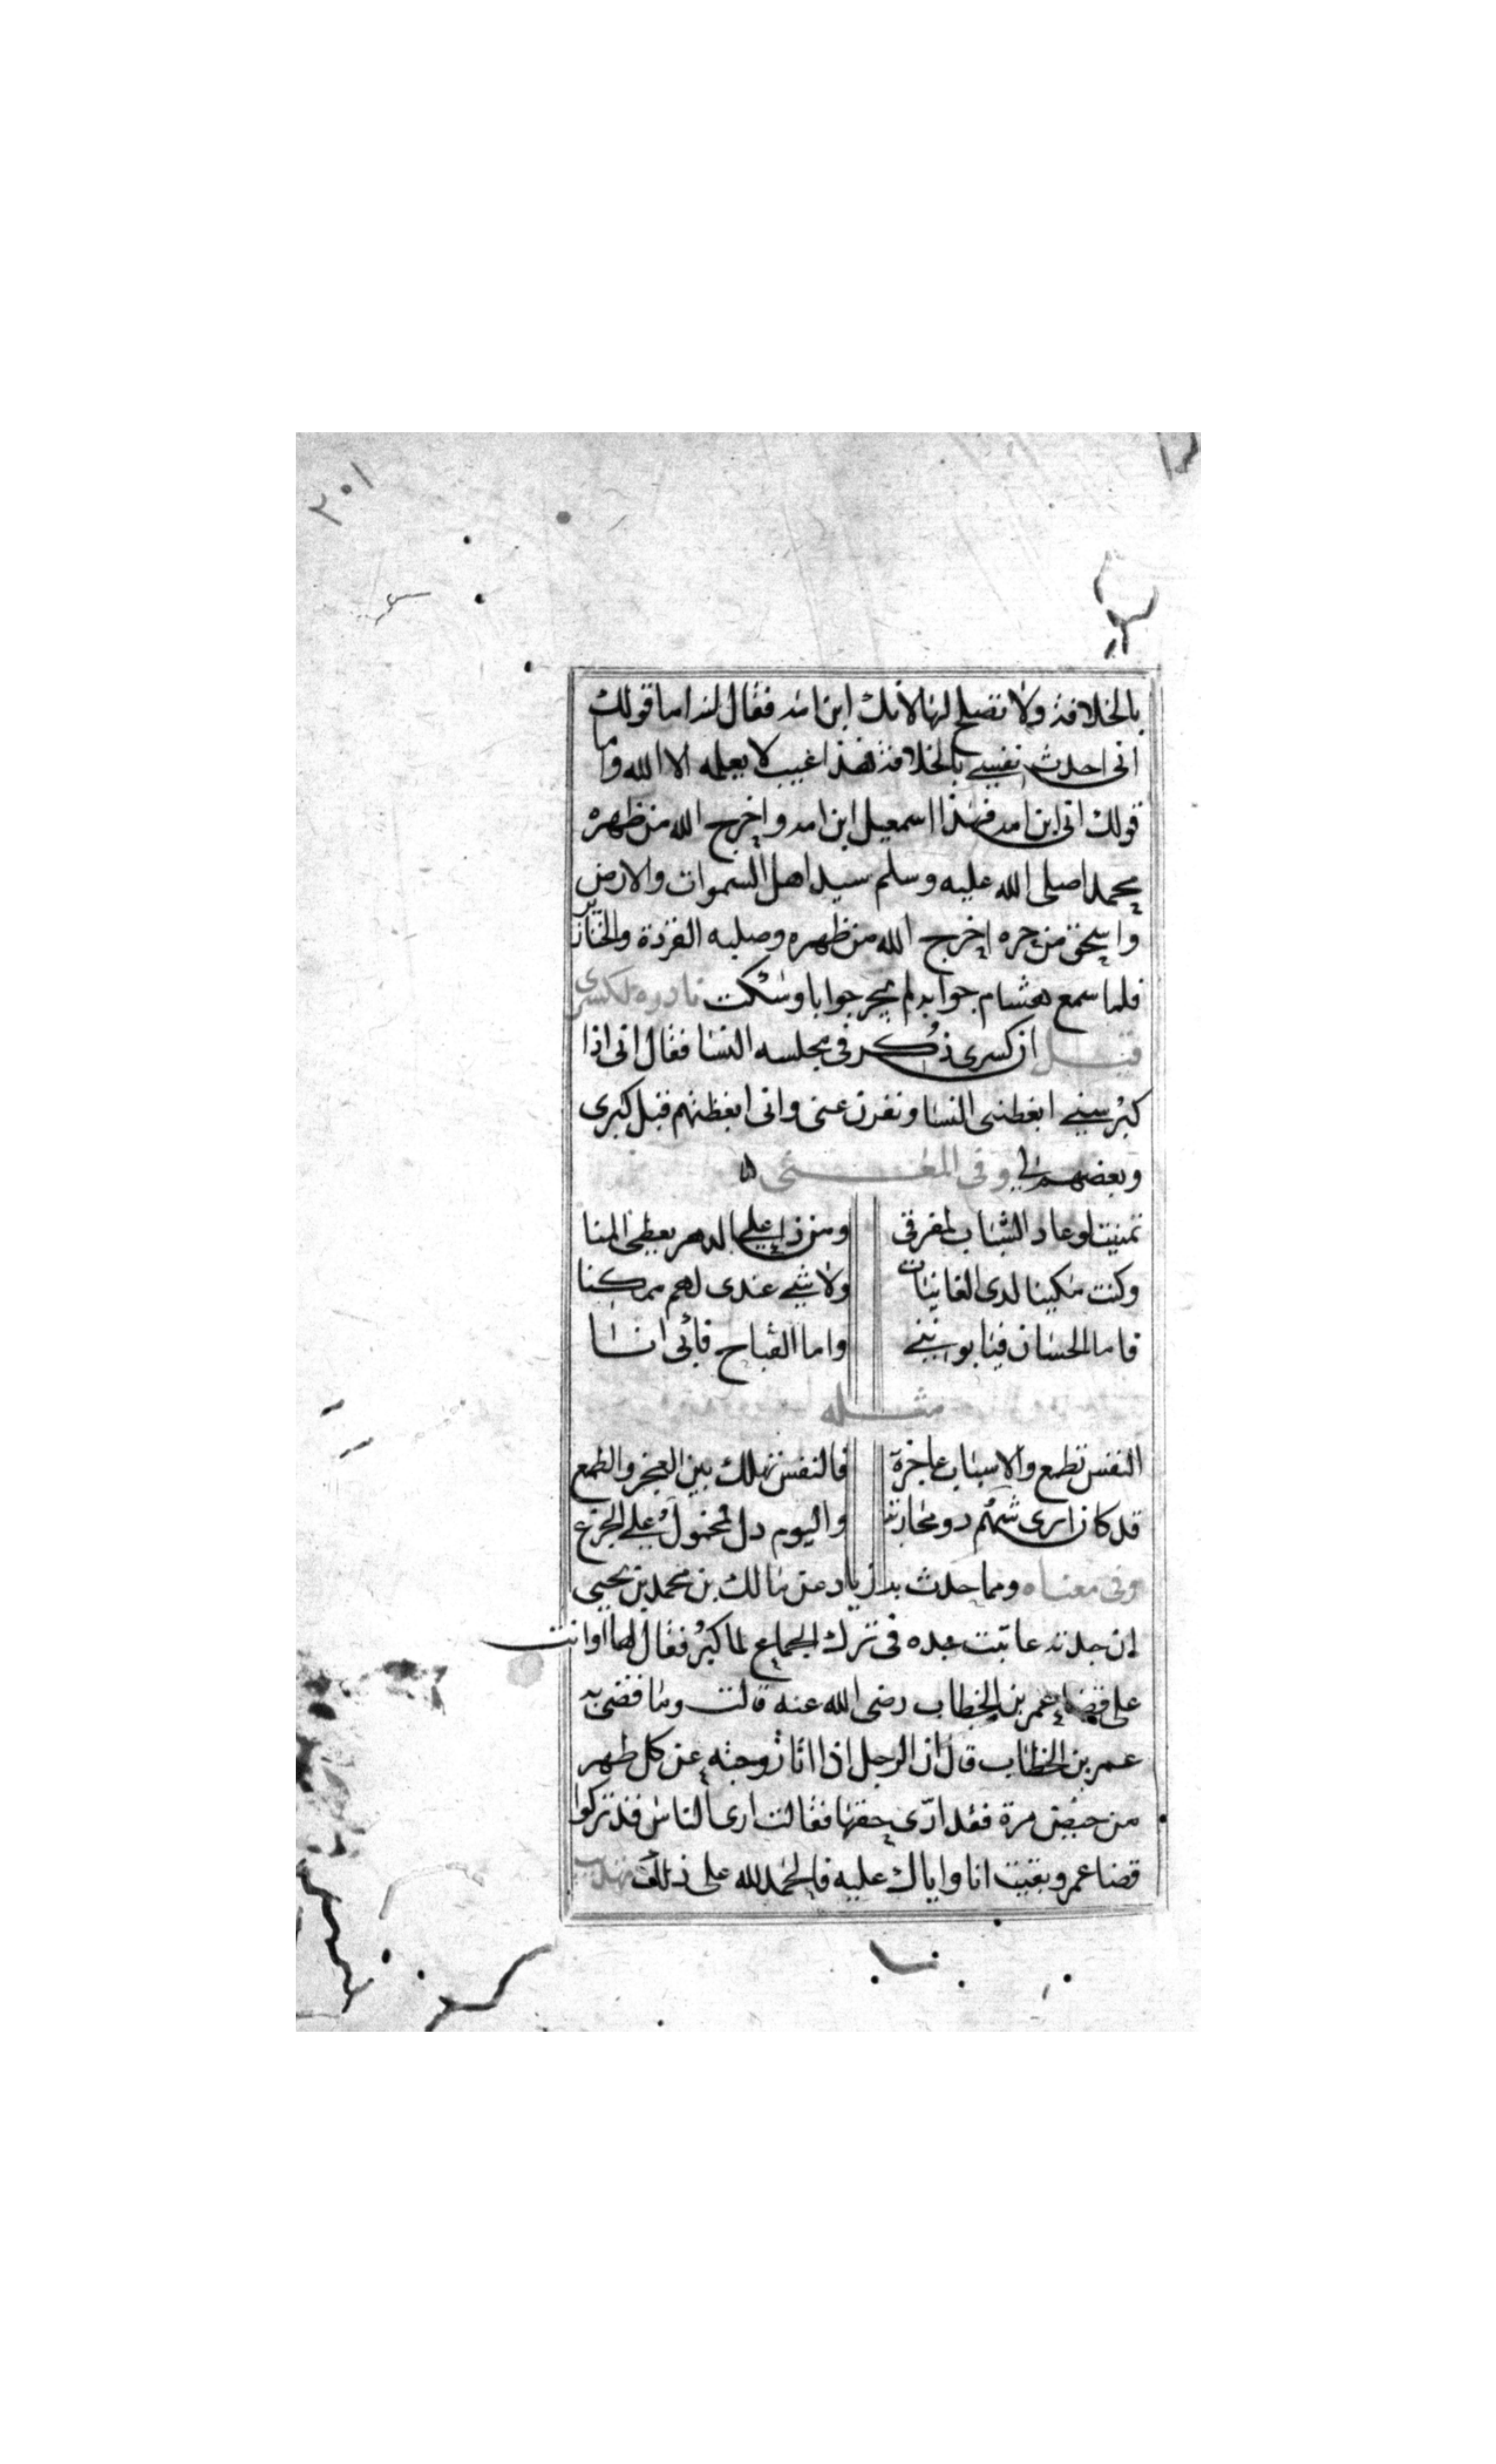 ٢٠١
بالخلافة ولا تصلح لها لانك ابن امه فقال له اما قولك
انى احدث نفسي بالخلافة فهذا غيب لا يعلمه الا الله واما
قولك انى ابن امه فهذا اسمعيل ابن امه واخرج الله من ظهره
محمدا صلى الله عليه وسلم سيد اهل السموات والارض
واسحق من حره اخرج الله من ظهره وصلبه القردة والخنازير
فلما سمع هشام جوابه لم يحر جوابا وسكت نادره لكسرى
قيل ان كسرى ذكر فى مجلسه النسا فقال انى اذا
كبر سني ابغطنى النسا ونفرن عنى وانى ابغظتهم قبل كبرى
وبعضهم لى وفى المعنى
تمنيت لو عاد الشباب لمفرقى ومن ذا على الدهر يعطى المنا
وكنت مكينا لدى الغانيات ولا شي عندى لهم ممكنا
فاما الحسان فيابونني واما القباح فابى انا
مثله
النفس تطمع والاسباب عاجزة فالنفس تهلك بين العجز والطمع
قد كان ارى شمم دو واليوم دل محمول على الجزع
وفى معناه ومما حدث به زياد عن مالك بن محمد بن يحيى
ان جدته عاتبت جده فى ترك الجماع لما كبر فقال لها اوانت
على قضا عمر بن الخطاب رضى الله عنه قالت وما قضى به
عمر بن الخطاب قال ان الرجل اذا اتا زوجته عن كل طهر
من حيض مرة فقد ادى حقها فقالت ارى الناس قد تركوا
قضا عمر وبقيت انا واياك عليه فالحمد لله على ذلك